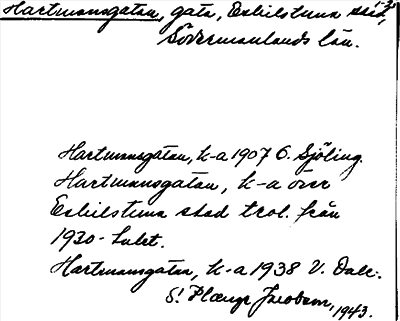 Hartmansgatan, gata, Eskilstuna stad,
Södermanlands län.
Hartmansgatan, k-a 1907 O. Sjöling.
Hartmansgatan, k-a över
Eskilstuna stad trol. från
1930-talet.
Hartmansgatan, k-a 1938 V. Dahl.
S! Plænge Jacobsen, 1943.